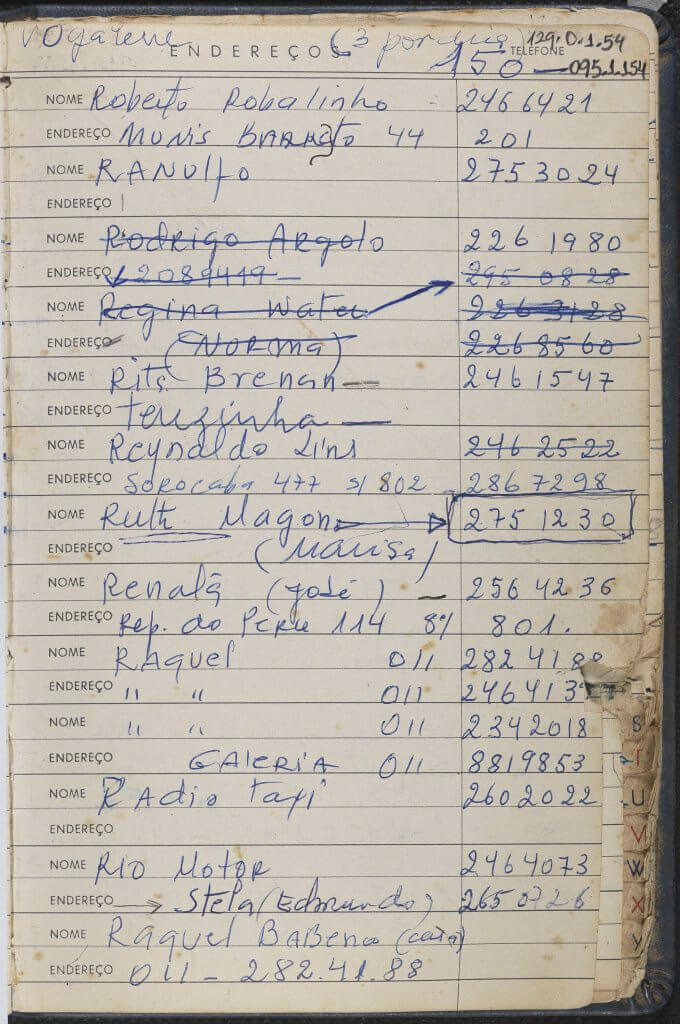 Vogalene (3 por dia) 129.0.1.54
ENDEREÇOS TELEFONE
150 — 095.1.154
NOME Roberto Robalinho - 2466421
ENDEREÇO Munis Barreto 44 201
NOME RANULFO 2753024
ENDEREÇO
NOME Rodrigo Argolo 226 1980
ENDEREÇO 2089449 — 295 0828
NOME Regina 226 3128
ENDEREÇO (NORMA) 226 8560
NOME Rita Brenan — 2461547
ENDEREÇO Terezinha —
NOME Reynaldo Lins 246 2522
ENDEREÇO Sorocaba 477 s/ 802 - 2867298
NOME Ruth Magon 275 1230
ENDEREÇO (Marisa)
NOME Renata (José) — 256 4236
ENDEREÇO Rep. do Peru 114 8º/ 801.
NOME RAquel 011 282 4188
ENDEREÇO " " 011 246413
NOME " " 011 2342018
ENDEREÇO GALERIA 011 8819853
NOME RAdio Taxi 2602022
ENDEREÇO
NOME RIO MOTOR 2464073
ENDEREÇO → Stela (Edmundo) 265 0726
NOME Raquel BABENCO (casa)
ENDEREÇO 011 - 282.41.88
S
T
U
V
W
X
Y